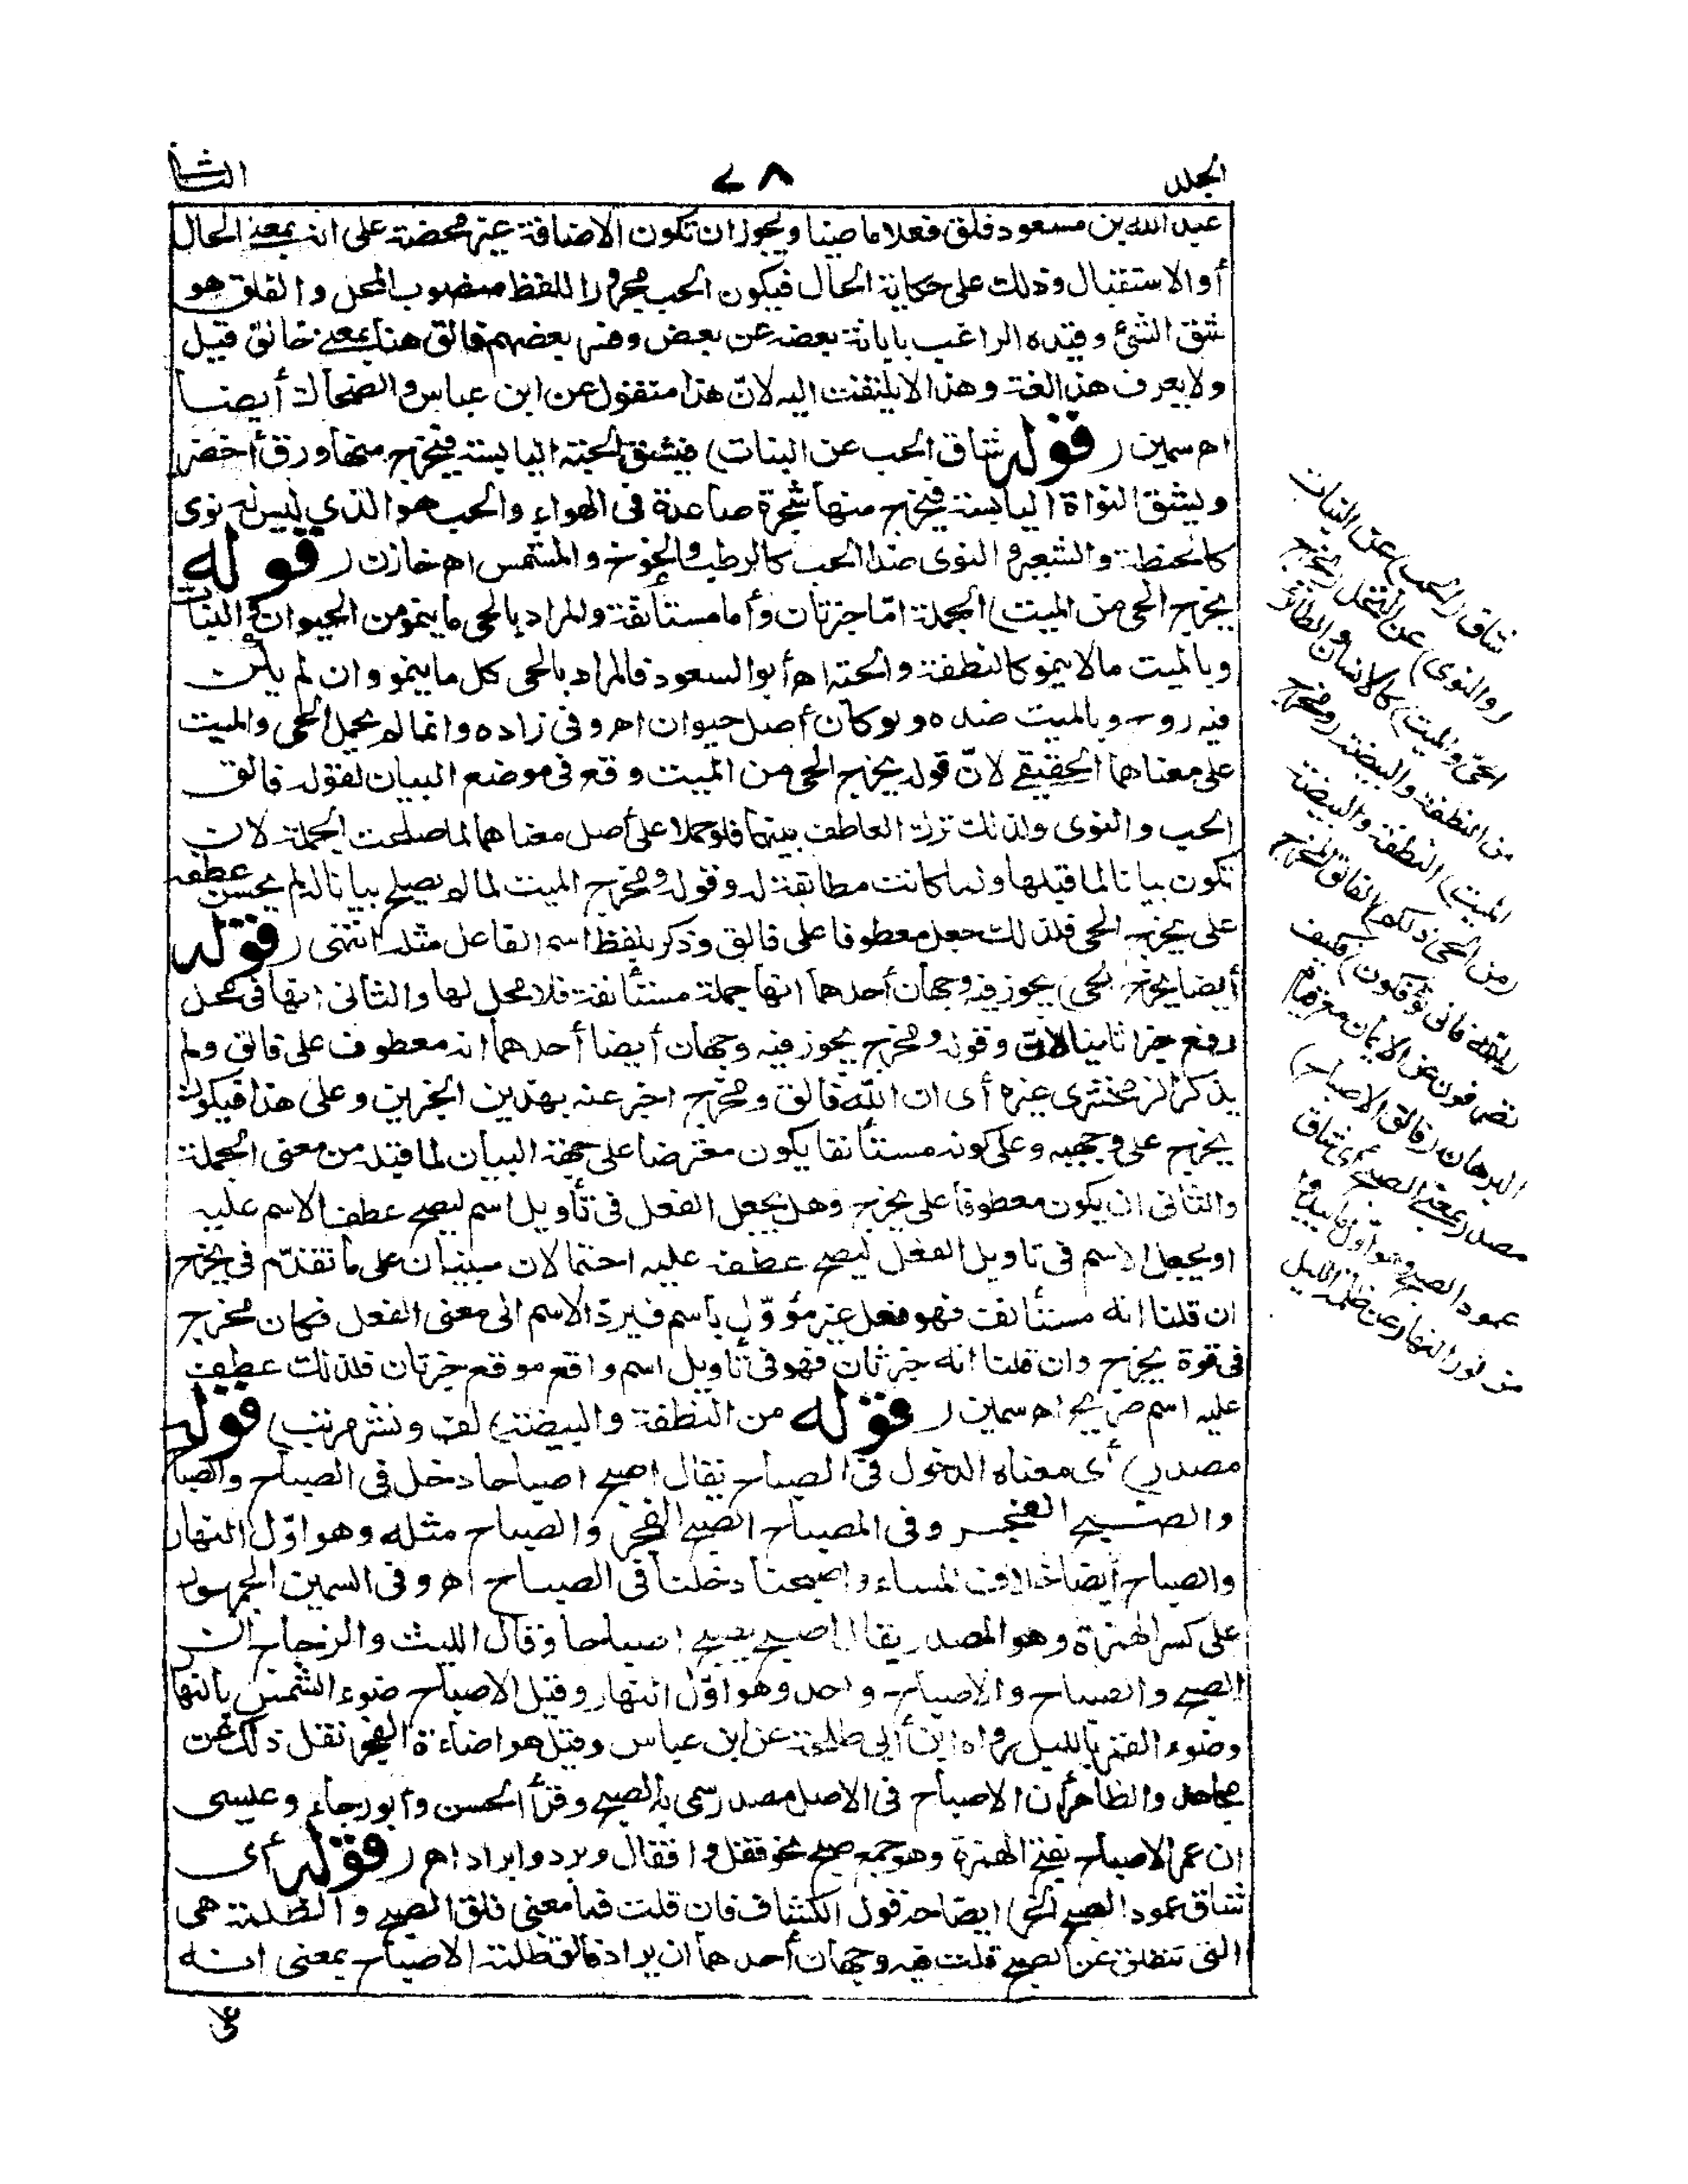 الجلد
٧٨
الثانی
عبد الله بن مسعود فلق فعلا ماضيا ويجوز ان تكون الاضافة غير محضة على انه بمعنى الحال
أو الاستقبال وذلك على حكاية الحال فيكون الحب مجرور اللفظ منصوب المحل والفلق هو
شق الشئ وقيده الراغب بابانة بعضه عن بعض وفسر بعضهم فالق هنا بمعنى خالق قيل
ولا يعرف هذا لغة وهذا لا يلتفت اليه لانّ هذا منقول عن ابن عباس والضحاك أيضا
اه سمين (قوله شاق الحب عن النبات) فيشق الحبة اليابسة فيخرج منها ورق أخضر
ويشق النواة اليابسة فيخرج منها شجرة صاعدة فى الهواء والحب هو الذي ليس له نوى
كالحنطة والشعير والنوى ضد الحب كالرطب والخوخ والمشمش اه خازن (قوله
يخرج الحى من الميت) الجملة امّا خبر ثان وأما مستأنفة والمراد بالحى ما ينمو من الحيوان والنبات
وبالميت مالا ينمو كالنطفة والحبة اه أبو السعود فالمراد بالحى كل ما ينمو وان لم يكن
فيه روح وبالميت ضده ولو كان أصل حيوان اه وفى زاده وانما لم يحمل الحى والميت
على معناهما الحقيقے لانّ قوله يخرج الحى من الميت وقع فى موضع البيان لقوله فالق
الحب والنوى ولذلك ترك العاطف بينهما فلو حملا على أصل معناهما لما صلحت الجملة لان
تكون بيانا لما قبلها ولما كانت مطابقة له وقوله ومخرج الميت لما لم يصلح بيانا له لم يحسن عطفه
على يخرج الحى فلذلك جعل معطوفا على فالق وذكر بلفظ اسم الفاعل مثله انتهى (قوله
أيضا يخرج الحى) يجوز فيه وجهان أحدهما انها جملة مستأنفة فلا محل لها والثانى انها فى محل
رفع خبرا ثانيا لان وقوله ومخرج يجوز فيه وجهان أيضا أحدهما انه معطوف على فالق ولم
يذكر الزمخشرى غيره أى ان الله فالق ومخرج اخبر عنه بهذين الخبرين وعلى هذا فيكون
يخرج على وجهيه وعلى كونه مستأنفا يكون معترضا على جهة البيان لما قبله من معنى الجملة
والثانى ان يكون معطوفا على يخرج وهل يجعل الفعل فى تأويل اسم ليصح عطف الاسم عليه
او يجعل الاسم فى تاويل الفعل ليصح عطفه عليه احتمالان مبنيان على ما تقدّم فى يخرج
ان قلنا انه مستأنف فهو فعل غير مؤوّل باسم فيردّ الاسم الى معنى الفعل فكان مخرج
فى قوة يخرج وان قلنا انه خبر ثان فهو فى تأويل اسم واقع موقع خبر ثان فلذلك عطف
عليه اسم صريح اه سمين (قوله من النطفة والبيضة) لف ونشر مرتب (قوله
مصدر) أى معناه الدخول فى الصباح يقال اصبح اصباحا دخل فى الصباح والصباح
والصبح الفجر وفى المصباح الصبح الفجر والصباح مثله وهو اوّل النهار
والصباح أيضا خلاف المساء واصبحنا دخلنا فى الصباح اه وفى السمين الجمهور
على كسر الهمزة وهو المصدر يقال اصبح يصبح اصباحا وقال الليث والزجاج ان
الصبح والصباح والاصباح واحد وهو اوّل النهار وقيل الاصباح ضوء الشمس بالنهار
وضوء القمر بالليل رواه ابن أبى طلحة عن ابن عباس وقيل هو اضاءة الفجر نقل ذلك عن
مجاهد والظاهر أن الاصباح فى الاصل مصدر سمى به الصبح وقرأ الحسن وأبو رجاء وعيسى
ابن عمر الاصباح بفتح الهمزة وهو جمع صبح نحو قفل واقفال وبرد وابراد اه (قوله أى
شاق عمود الصبح الخ) ايضاحه قول الكشاف فان قلت فما معنى فلق الصبح والظلمة هى
التى تنفلق عن الصبح قلت فيه وجهان أحدهما ان يراد فالق ظلمة الاصباح بمعنى انه
شاق (الحب) عن النبات
(والنوى) عن النخل (يخرج
الحىّ من الميت) كالانسان والطائر
من النطفة والبيضة (ومخرج
الميت) النطفة والبيضة
(من الحى ذلكم) الفالق المخرج
(الله فانى تؤفكون) فكيف
تصرفون عن الايمان مع قيام
البرهان (فالق الاصباح)
مصدر بمعنى الصبح أى شاق
عمود الصبح وهو أوّل ما يبدو
من نور النهار عن ظلمة الليل